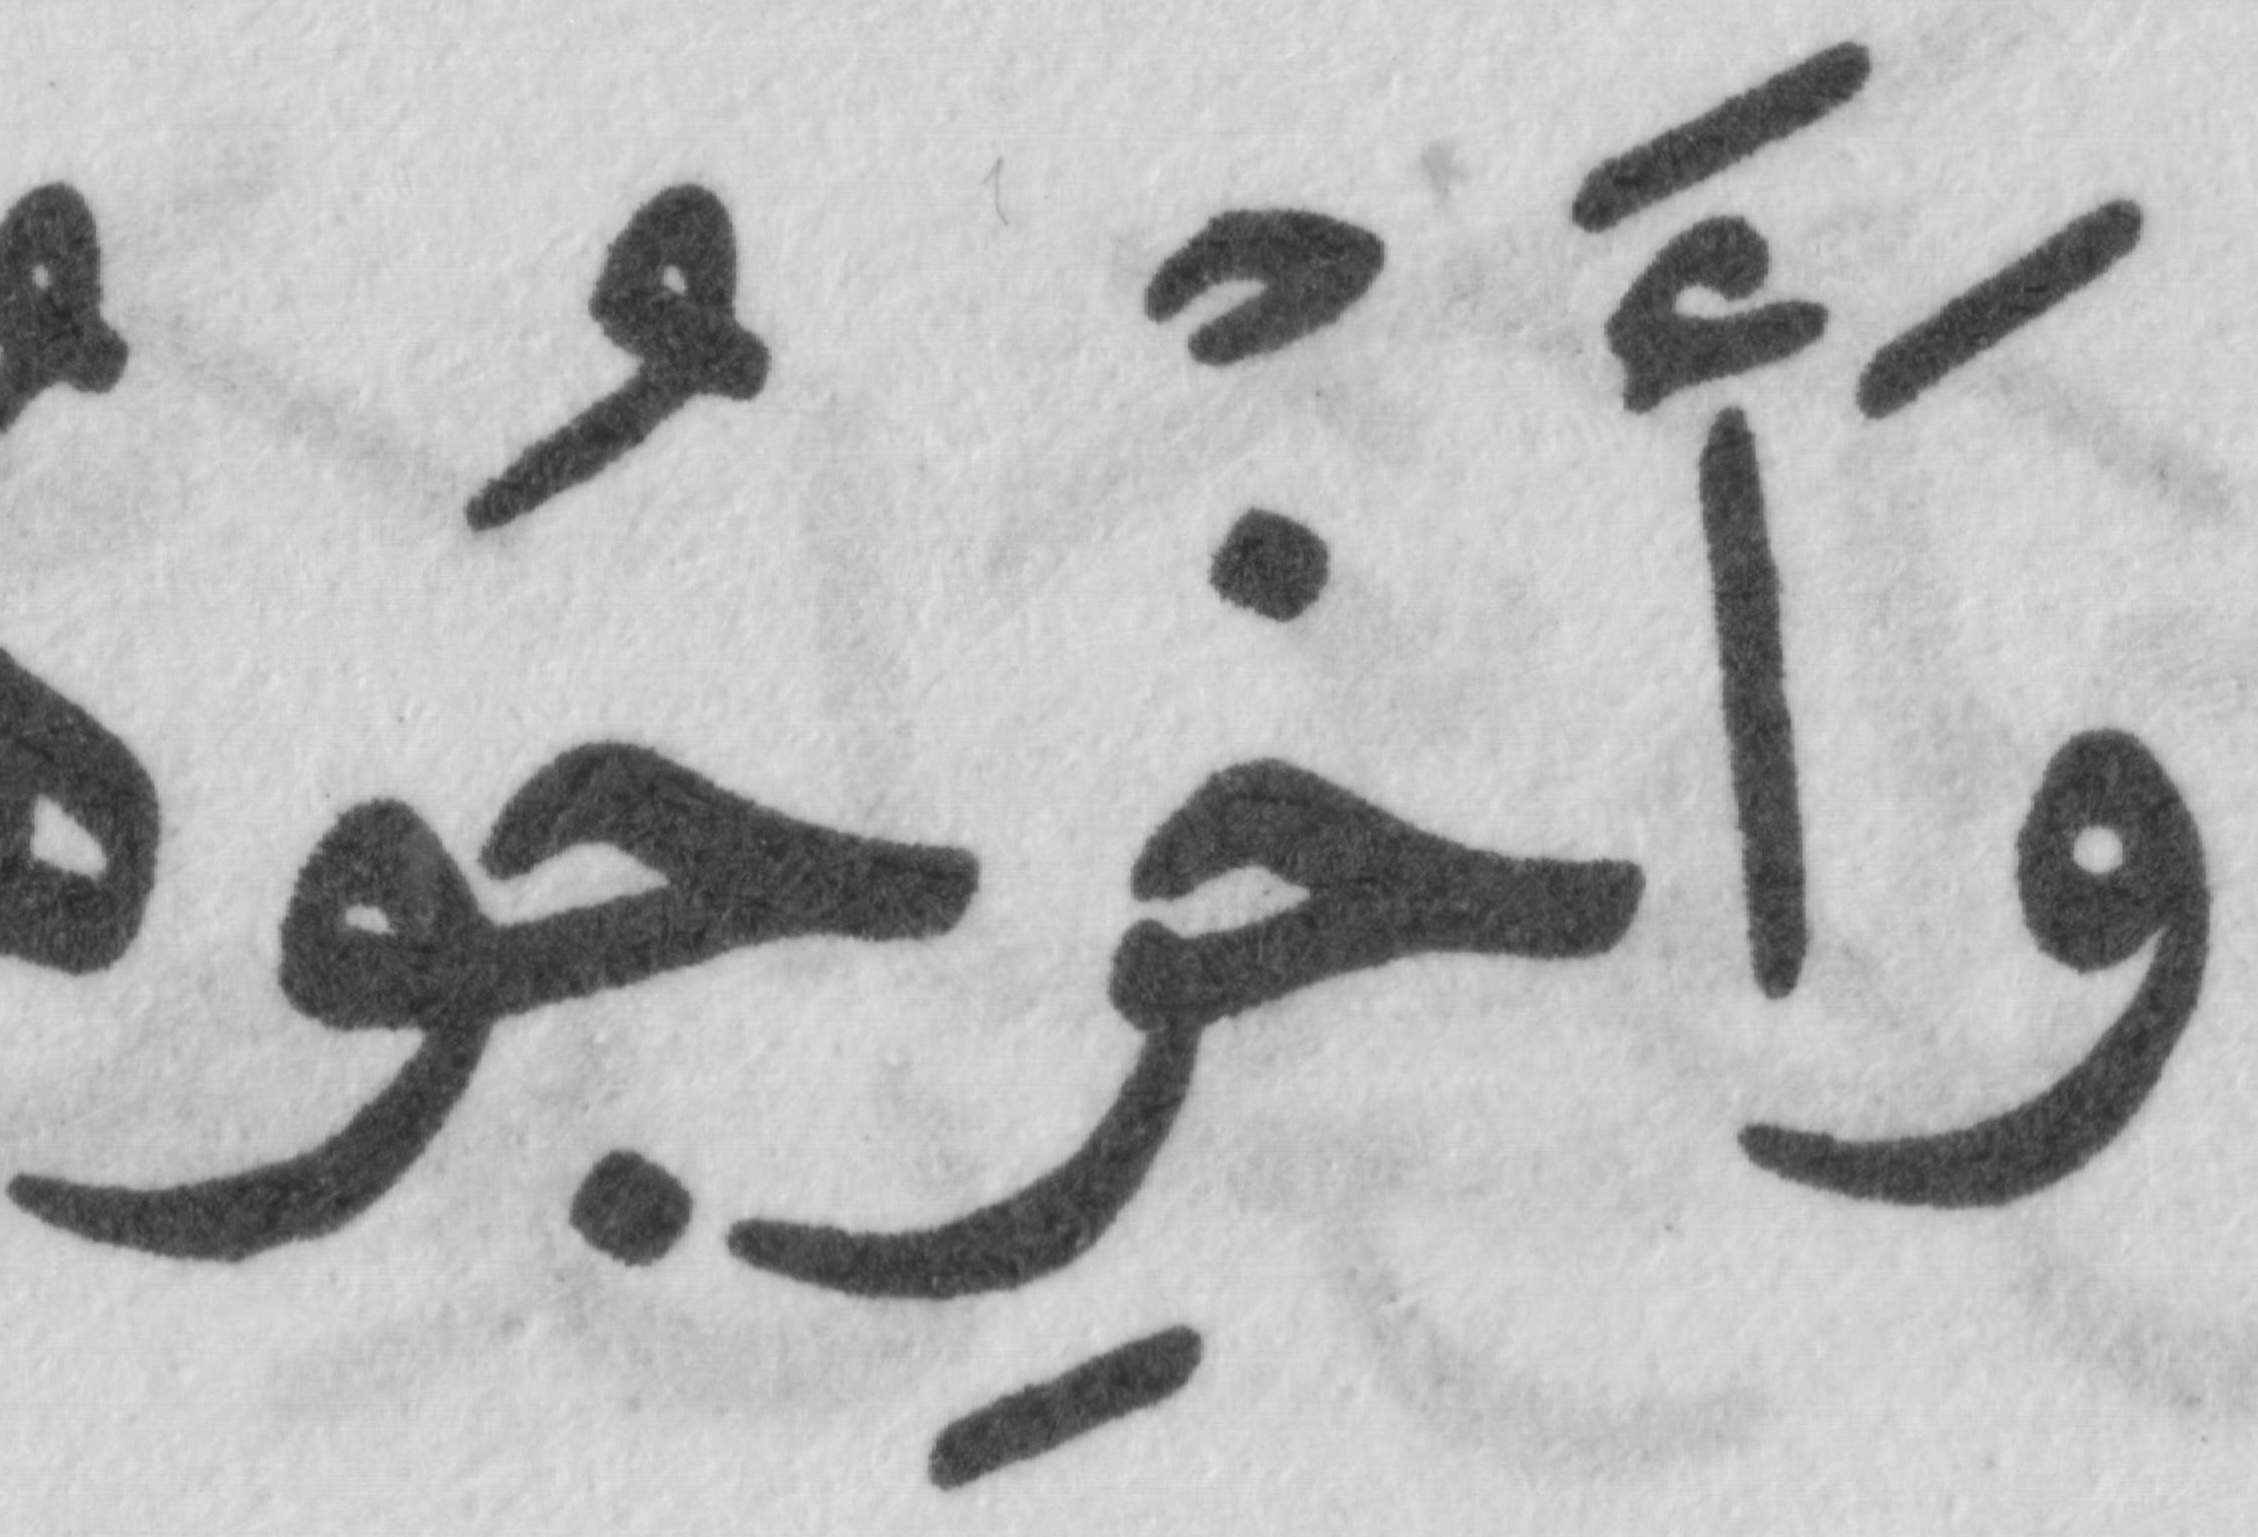 وَأَخْرِجُوهُ